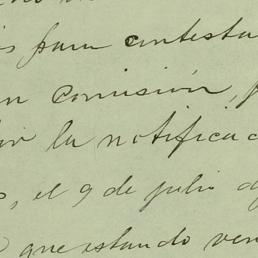 para contesta
en comisión, p
por la notificac
, el 9 de julio d
que estando ven